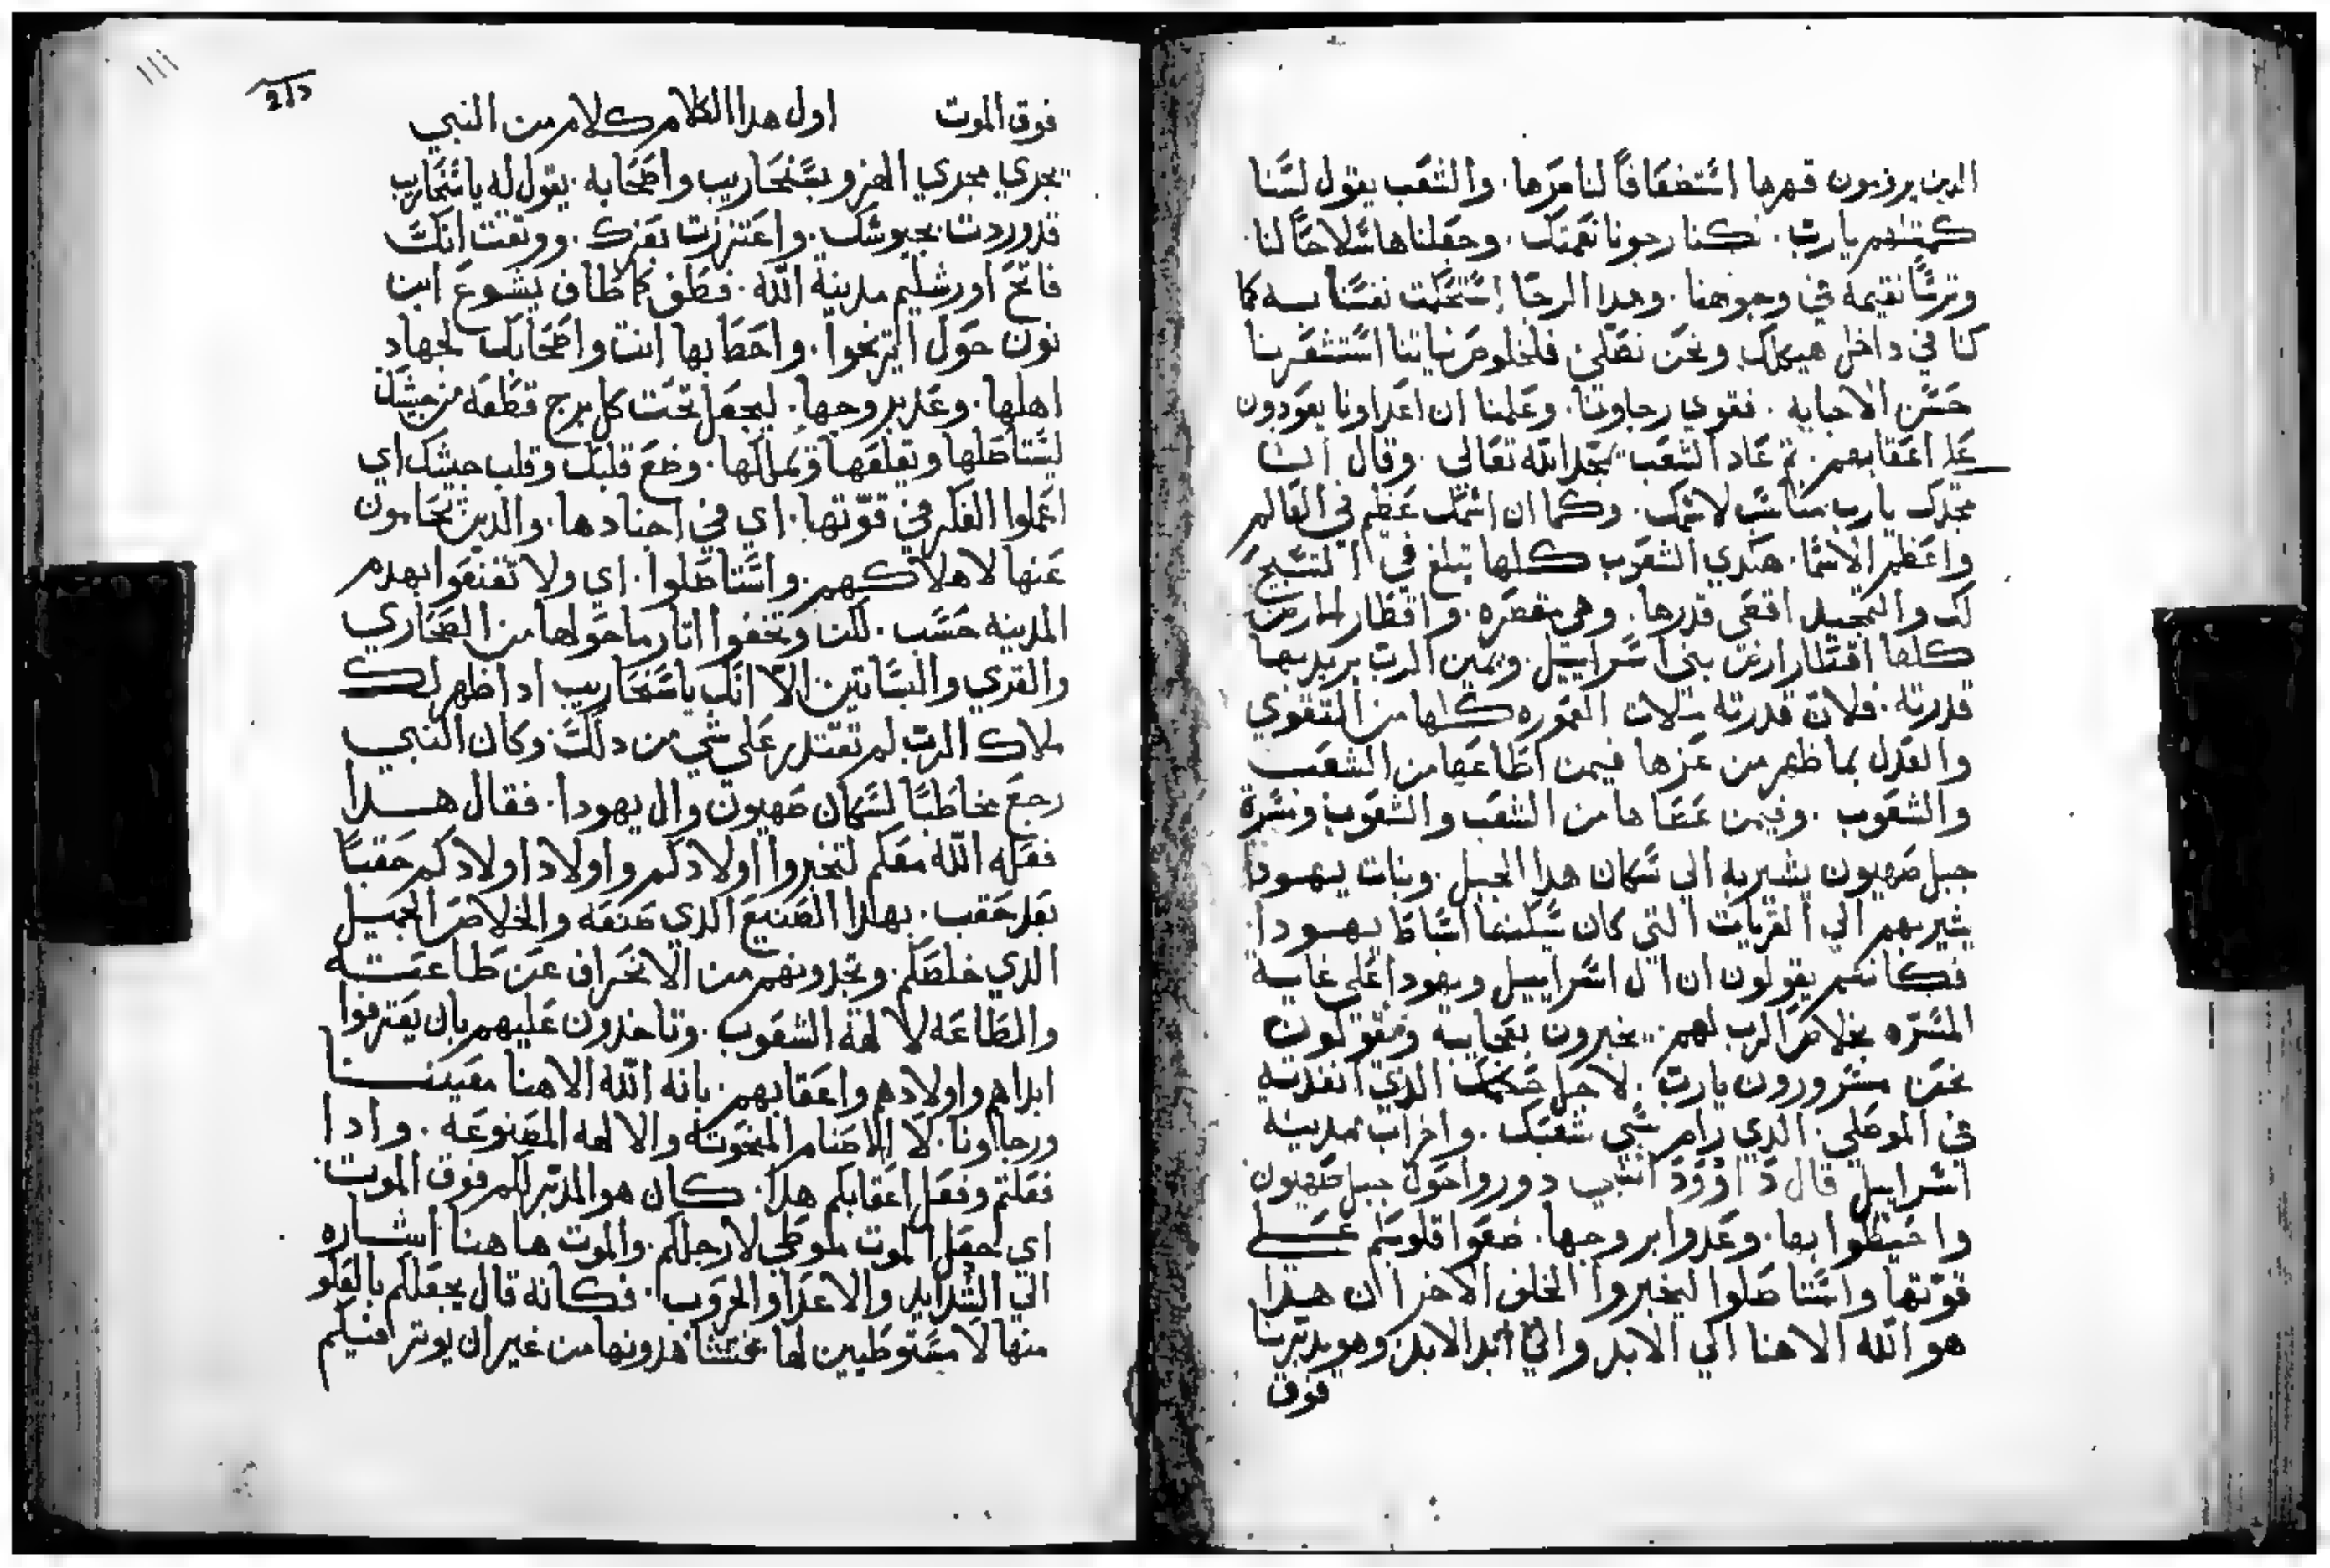 الدين يرومون قهرها استضعافًا لنا مرها. والشعب يقول لسنا
كمثلهم يارب. كنا رجونا نعمتك. وجعلناها سلاحًا لنا.
وترسًا نقيمه في وجوهنا. وهدا الرجا استحبت نفسنا به كما
كنا في داخل هيكلك ونحن نصلي فلخلوص نياتنا استشعرنا
حسن الاجابه. فقوي رجاونا. وعلمنا ان اعداونا يعودون
على اعقابهم. تم عاد الشعب يمجد الله تعالي. وقال ان
مجدك يارب مناسب لاسمك. وكما ان اسمك عظيم في العالم
واعظم الاسما. هكدي الشعوب كلها تبلغ في التسبيح
لك والتمجيد اقصي قدرها. وهي مقصره. واقطار الارض
كلها اقطار ارض بني اسراييل. ويمين الرب يريد بها
قدرته. فلان قدرته ملات المعموره كلها من التقوي
والعدل بما ظهر من عزها فيمن اطاعها من الشعب
والشعوب. وفيمن عصاها من الشعب والشعوب ومسرة
جبل صهيون يشير به الي سكان هدا الجبل. وبنات يهودا
يشير بهم الي القريات التي كان يسكنها اسباط يهودا.
فكانهم يقولون ان ال اسراييل ويهودا على غاية
المسره بخلاص الرب لهم. يخبرون بعجايبه ويقولون
نحن مسرورون يارب. لاجل حكمك الدي انفدته
في الموصلي. الدي رام سبي شعبك. واخراب مدينة
اسراييل قال داوود النبي دوروا حول جبل صهيون
واحيطوا بها. وعدوا بروجها. ضعوا قلوبكم على
قوتها واستاصلوا ليخبروا الخلف الاخر ان هدا
هو الله الاهنا الي الابد والي ابد الابد. وهو يدبرنا
فوق
111
فوق الموت اول هدا الكلام كلام من النبي
يجري مجري الهزو بسنحاريب واصحابه. يقول له ياسنحاريب
قد وردت بجيوشك. واعتززت بعزك. ووتقت انك
فاتح اورشليم مدينة الله. فطف كما طاف يشوع ابن
نون حول اليريحوا. واحط بها انت واصحابك لجهاد
اهلها. وعد بروجها. ليجعل تحت كل برج قطعه من جيشك
لتستاصلها وتقلعها وتملكها. وضع قلبك وقلب جيشك اي
اعملوا الفكر في قوتها. اي في اجنادها. والدين يحامون
عنها لاهلاكهم. واستاصلوا. اي ولا تقنعوا بهدم
المدينه حسب. لكن وتخفوا اتار ماحولها من الصحاري
والقري والبساتين. الا انك ياسنحاريب ادا ظهر لك
ملاك الرب لم تقتدر على شي من دلك. وكان النبي
رجع مخاطبًا لسكان صهيون وال يهودا. فقال هدا
فعله الله معكم لتخبروا اولادكم واولاد اولادكم حقبًا
بعد حقب. بهدا الصنيع الدي صنعه والخلاص الجميل
الدي خلصكم. وتحدونهم من الانحراف عن طاعته
والطاعه لالهة الشعوب. وتاخدون عليهم بان يعترفوا
ابداهم واولادهم واعقابهم. بانه الله الاهنا معيننا
ورجاونا. لا الاصنام المنحوته والالهه المصنوعه. وادا
فعلتم وفعل اعقابكم هدا. كان هو المدبر لكم فوق الموت.
اي يجعل الموت موطي لارجلكم. والموت هاهنا اشاره
الي الشدايد والاعدا والحروب. فكانه قال يجعلكم بالعلو
منها لا مستوطيين لها بحيث تشاهدونها من غير ان يوتر فيكم